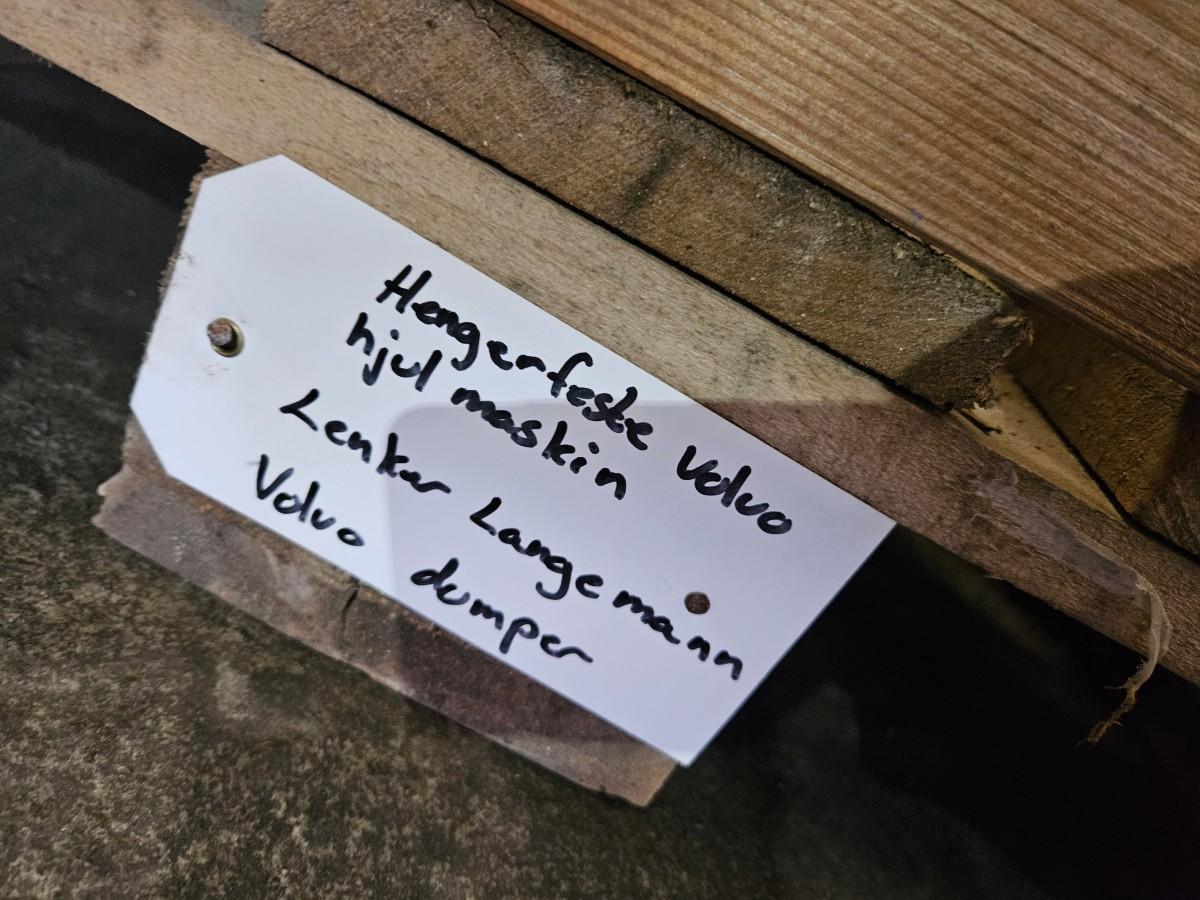 Hengerfeste Volvo
hjul maskin
Lenker Langemann
Volvo dumper